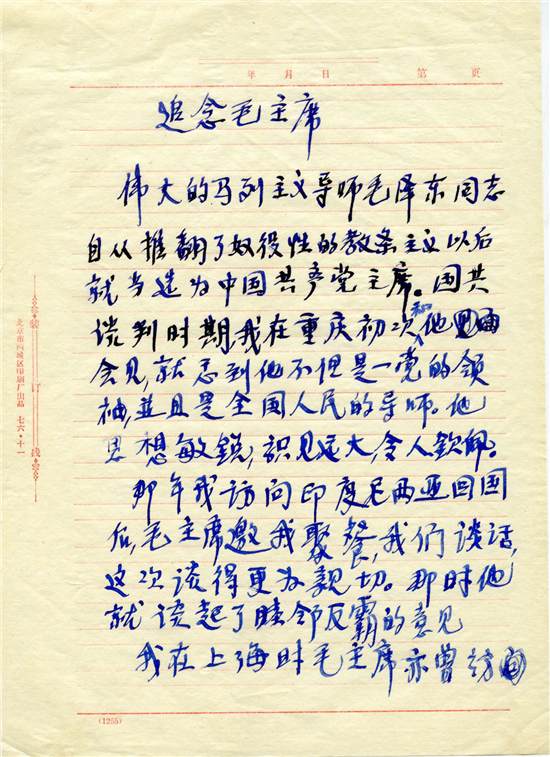 年 月 日 第 页
追念毛主席
伟大的马列主义导师毛泽东同志
自从推翻了奴役性的教条主义以后
就当选为中国共产党主席。国共
谈判时期,我在重庆初次和他
会见,就感到他不但是一党的领
袖,並且是全国人民的导师。他
思想敏锐,识见远大,令人钦佩。
那年我访问印度尼西亚回国
后,毛主席邀我聚餐,我们谈话,
这次谈得更为亲切。那时他
就谈起了睦邻反霸的意见
我在上海时毛主席亦曾访
装订线
北京市西城区印刷厂出品 七六·十一
(1255)